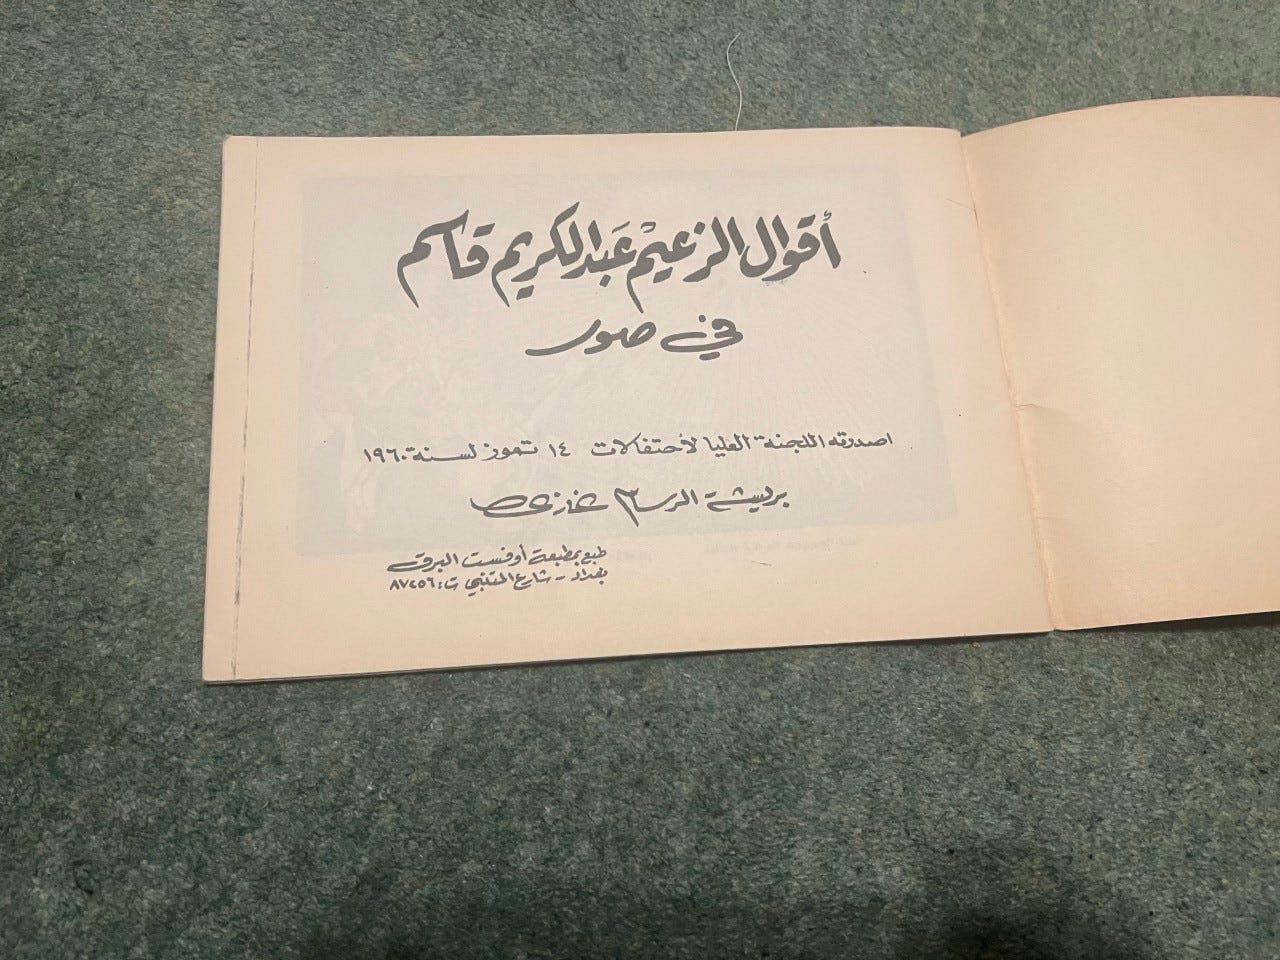 أقوال الزعيم عبد الكريم قاسم
في صور
اصدرته اللجنة العليا لأحتفالات ١٤ تموز لسنة ١٩٦٠
بريشة الرسام غازي
طبع بمطبعة أوفست البرق
بغداد - شارع المتنبي ت: ٨٧٢٥٦